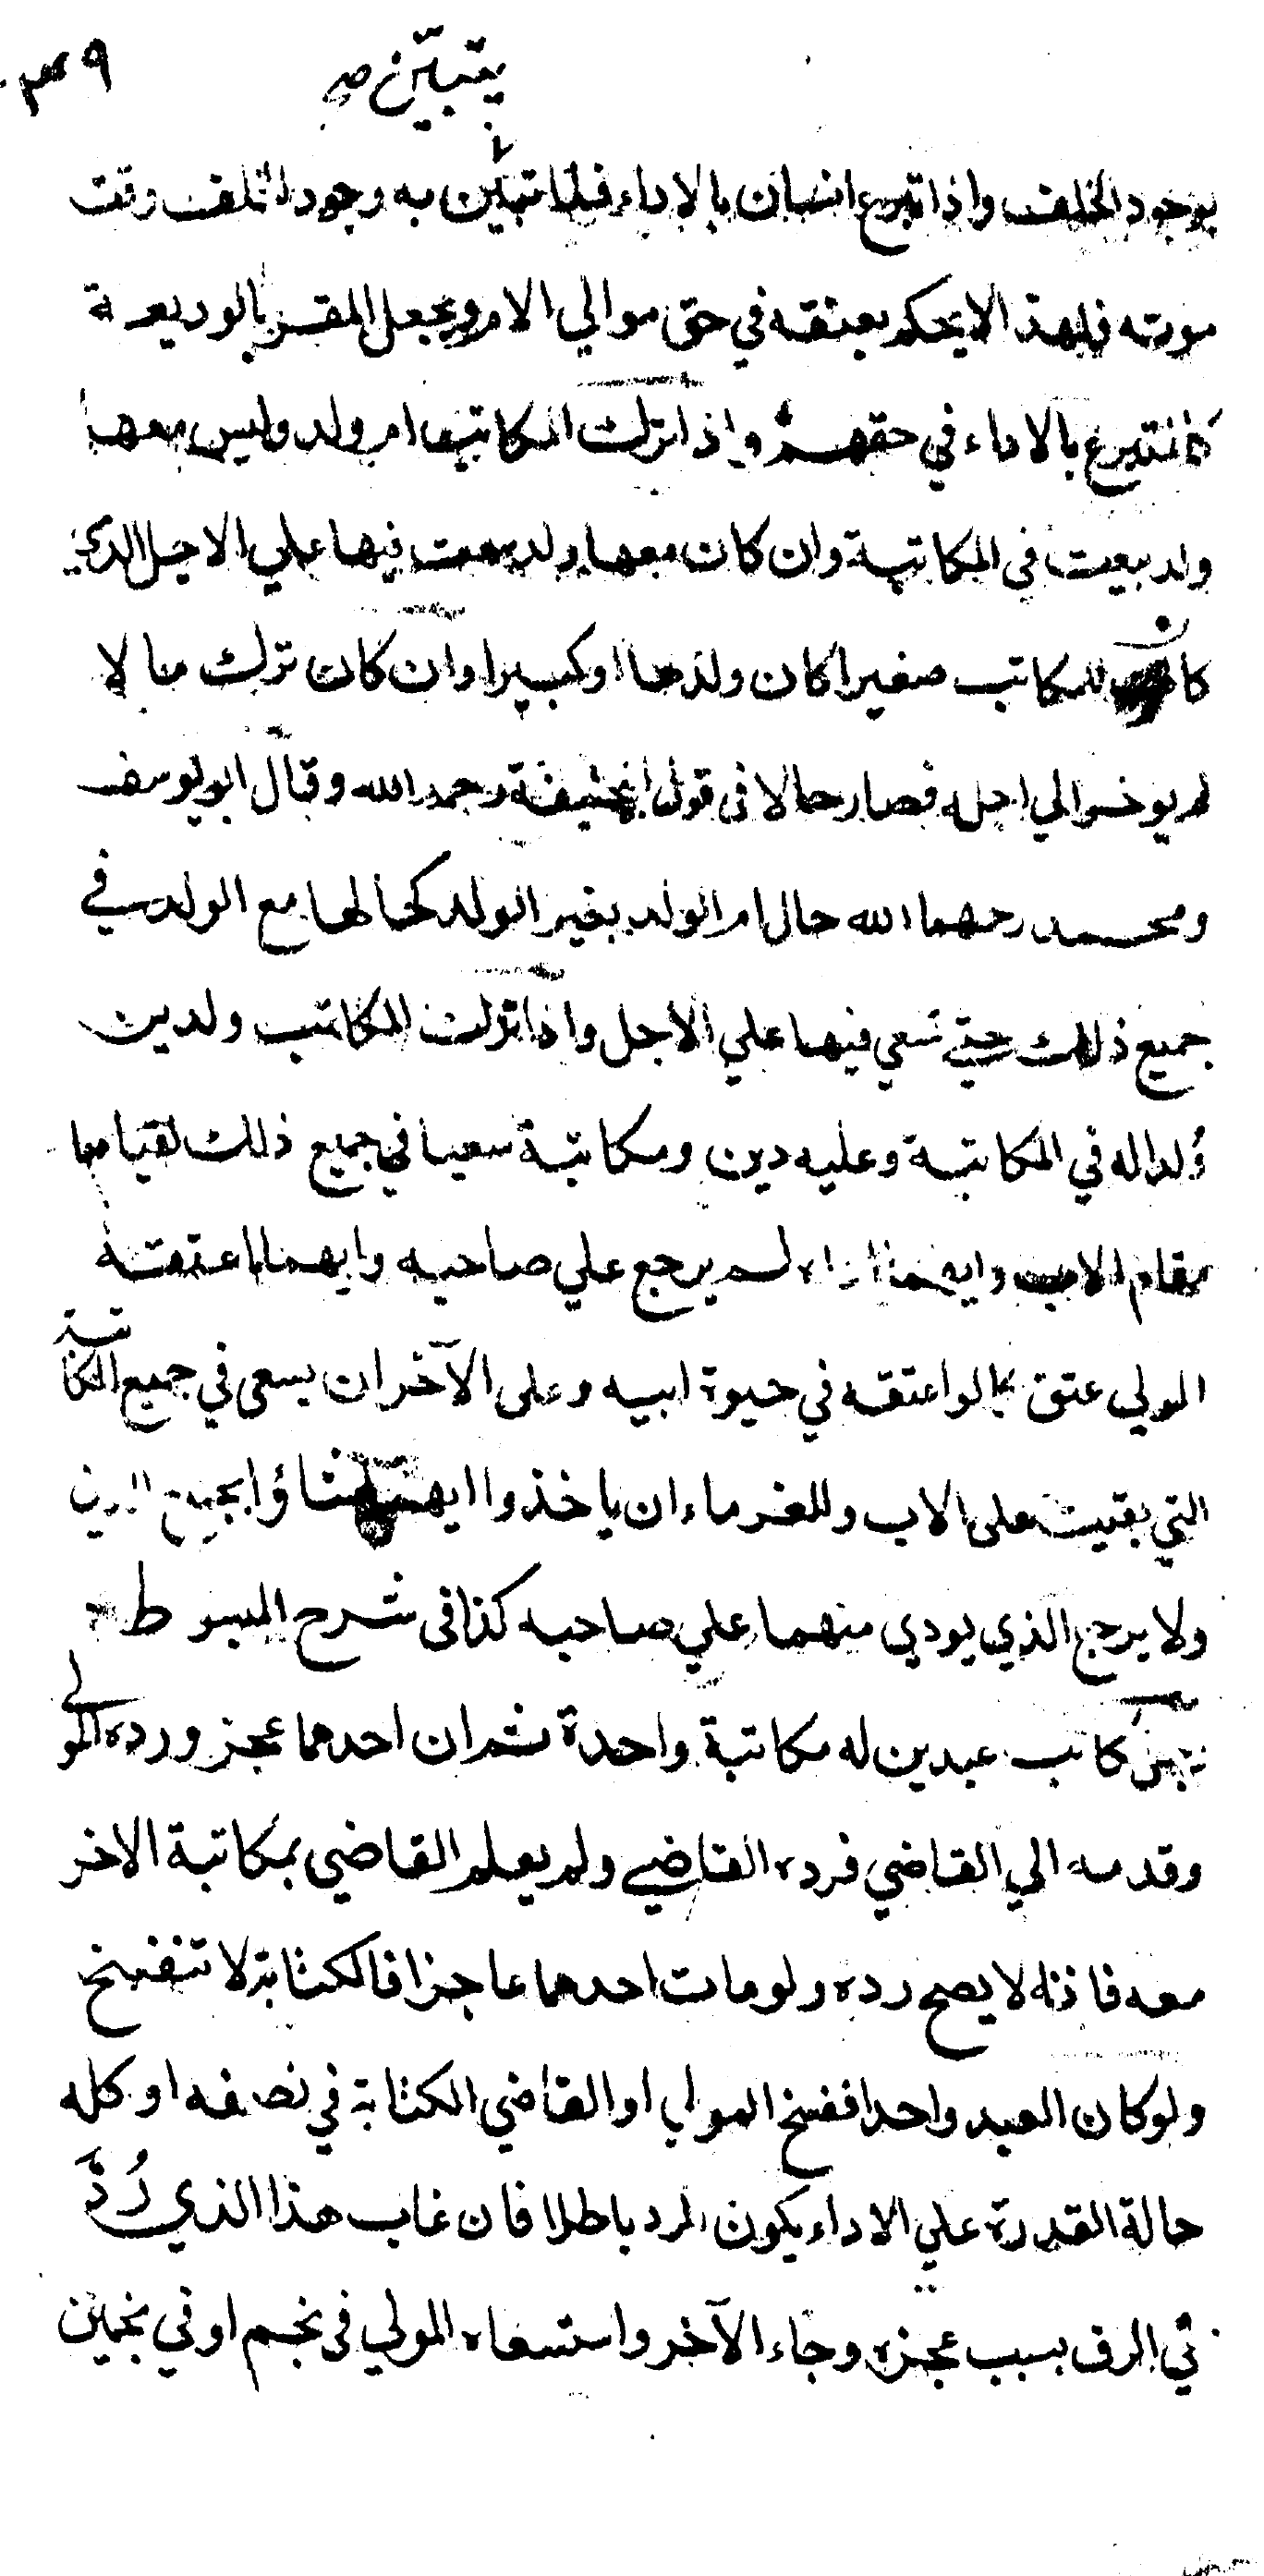 يتبين صح
بوجود الخلف واذا تبرع انسان بالاداء فلما تبين به وجود الخلف وقت
موته فلهذا لا يحكم بعتقه في حق موالي الام ويجعل المقر بالوديعة
كالمتبرع بالاداء في حقهم واذا ترك المكاتب ام ولد وليس معها
ولد بيعت في المكاتبة وان كان معها ولد سعت فيها علي الاجل الذي
كان للمكاتب صغيرا كان ولدها او كبيرا وان كان ترك مالا
لم يوخر الي اجله فصار حالا في قول ابيحنيفة رحمه الله وقال ابو يوسف
ومحمد رحمهما الله حال ام الولد بغير الولد كحالها مع الولد في
جميع ذلك حتي تسعي فيها علي الاجل واذا ترك المكاتب ولدين
ولدا له في المكاتبة وعليه دين ومكاتبة سعيا في جميع ذلك لقيامهما
مقام الاب وايهما اداه لم يرجع علي صاحبه وايهما اعتقه
المولي عتق كما لو اعتقه في حيوة ابيه وعلى الآخر ان يسعى في جميع المكاتبة
التي بقيت على الاب وللغرماء ان ياخذوا ايهما شاؤا بجميع الدين
ولا يرجع الذي يودي منهما علي صاحبه كذا في شرح المبسوط
كاتب عبدين له مكاتبة واحدة ثم ان احدهما عجز ورده المولي
وقدمه الي القاضي فرده القاضي ولم يعلم القاضي بمكاتبة الاخر
معه فاذنله لا يصح رده ولو مات احدهما عاجزا فالكتابة لا تنفسخ
ولو كان العبد واحدا ففسخ المولي او القاضي الكتابة في نصفه او كله
حالة القدرة علي الاداء يكون الرد باطلا فان غاب هذا الذي رُدَّ
في الرق بسبب عجزه وجاء الآخر واستسعاه المولي في نجم او في نجمين